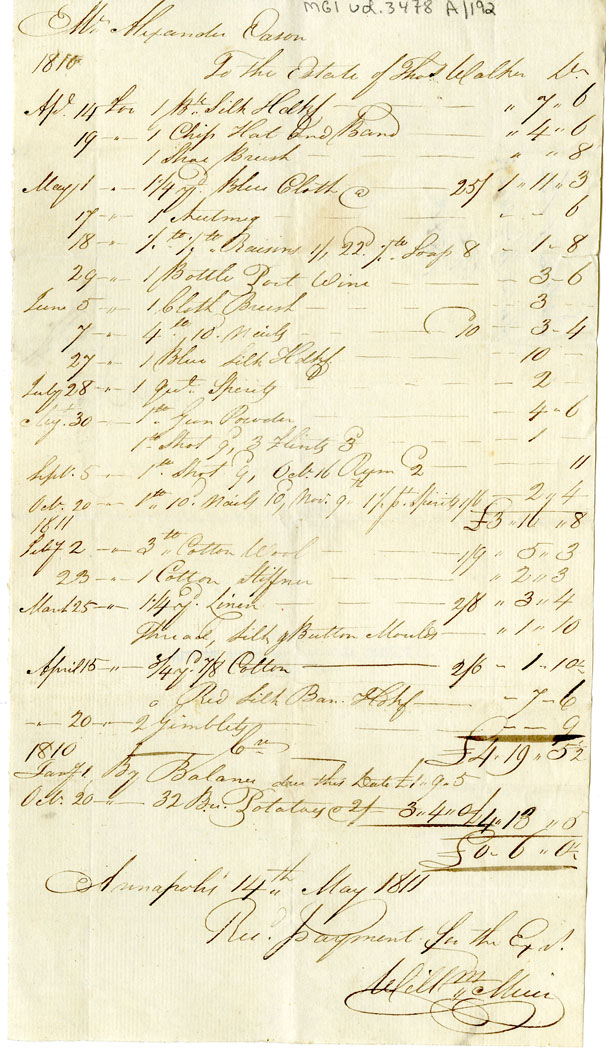 MG1 vol. 3478 A/192
Mr. Alexander Eason
1810 To the Estate of Thos. Walker Dr.
Apl. 14 For 1 Bk. Silk Hdkf — " 7 " 6
19 " 1 Chip Hat and Band — " 4 " 6
1 Shoe Brush — " " 8
May 1 " 1 1/4 yd. Blue Cloth @ 25/ 1 " 11 " 3
17 " 1 Nutmeg — " - 6
18 " Raisins 1/1, 22d. Soap 8 - 1 - 8
29 " 1 Bottle Port Wine — 3 - 6
June 5 " 1 Cloth Brush — 3
7 " 4 lb 10d. Nails — @ 10 - 3 - 4
27 " 1 Blue Silk Hdkf — 10 -
July 28 " 1 Qut. Sperits — 2
Augt. 30 " 1 lb. Gun Powder — 4 - 6
1 lb Shot 9, 3 Flints 3 — 1 -
Sept. 5 " 1 lb. Shot 9, Oct. 16 2 11
Oct. 20 " 1 lb 10d. Nails 10, Nov. 9 1 pt. Sperits 1/6 2 " 4
£3 " 16 " 8
1811
Feby 2 " 3 lb Cotton Wool — 1/9 " 5 " 3
23 " 1 Cotton Stiffner — " 2 " 3
March 25 " 1 1/4 yd. Linen — 2/8 " 3 " 4
Thread, Silk & Button Moulds — " 1 " 10
April 15 " 3/4 yd. 7/8 Cotton — 2/6 - 1 - 10 1/2
Red Silk Ban. Hdkf — - 7 - 6
" 20 " 2 Gimblets — - - 9
Cr. £4 " 19 " 5 1/2
1810
Jany 1, By Balance due this Date £1 " 9 " 5
Oct. 20 " 32 Bu. Potatoes @ 2/ 3 " 4 " 0 £4 " 13 " 5
£0 " 6 " 0 1/2
Annapolis 14th May 1811
Recd. payment for the Exr.
Willm. Muir